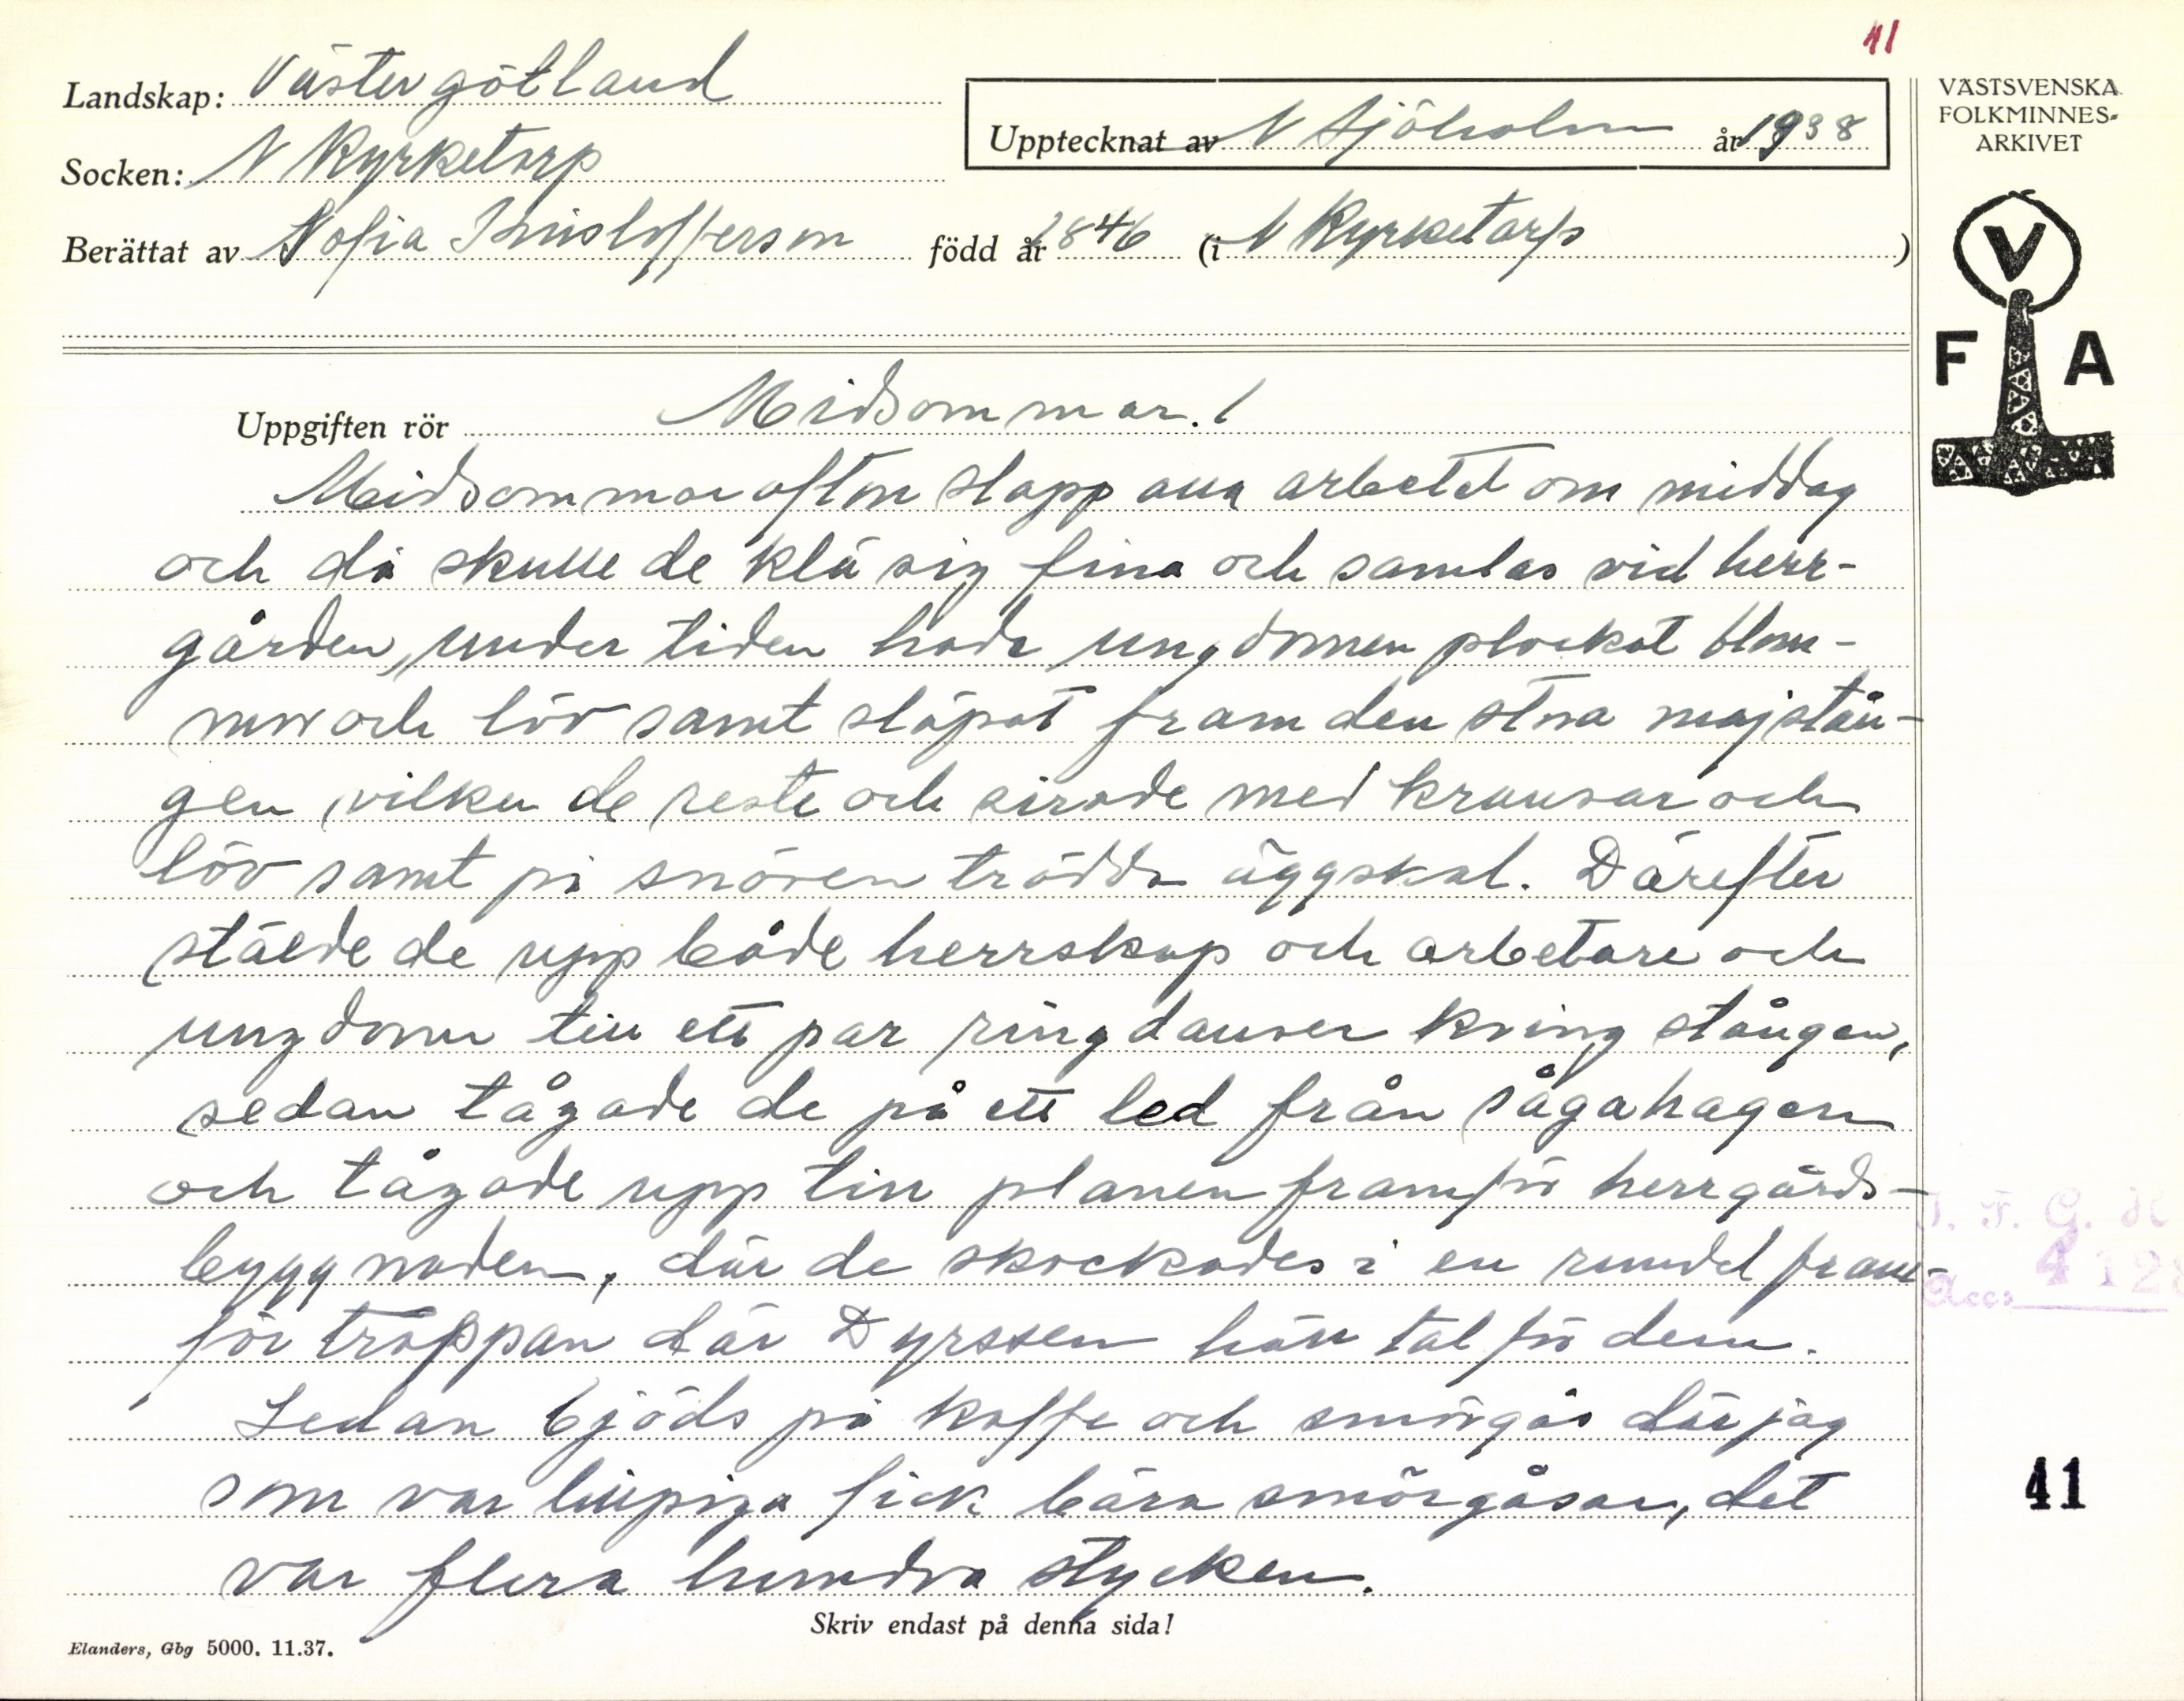 41
Landskap: Västergötland
Socken: N Kyrketorp
Upptecknat av N Sjöholm år 1938
Berättat av Sofia Kristofferson född år 1846 (i N Kyrketorp)
VÄSTSVENSKA
FOLKMINNES-
ARKIVET
V
F A
Uppgiften rör Midsommar. 1
Midsommarafton slapp alla arbetet om middag
och då skulle de klä sig fina och samlas vid herr-
gården, under tiden hade ungdomen plockat blom-
mor och löv samt släpat fram den stora majstån-
gen, vilken de reste och sirade med kransar och
löv samt på snören trädda äggskal. Därefter
stälde de upp både herrskap och arbetare och
ungdom till ett par ringdanser kring stången,
sedan tågade de på ett led från sågahagen
och tågade upp till planen framför herrgårds-
byggnaden, där de skockades i en rundel fram-
för trappan där Dyrssen höll tal för dem.
Sedan bjöds på kaffe och smörgås där jag
som var lillpiga fick bära smörgåsar, det
var flera hundra stycken.
I. F. G. H
Acc: 4128
41
Skriv endast på denna sida!
Elanders, Gbg 5000. 11.37.